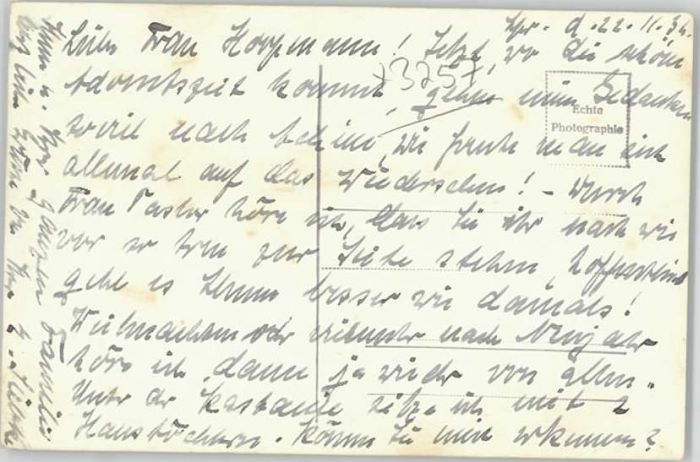 Spr. d. 22.11.34.
Liebe Frau Koopmann! Jetzt, wo die schöne
Adventszeit kommt, gehen meine Gedanken
soviel nach daheim, wie freute man sich
allemal auf das Wiedersehen! - Durch
Frau Pastor höre ich, dass Sie ihr nach wie
vor so treu zur Seite stehen, hoffentlich
geht es Ihnen besser wie damals!
Weihnachten oder vielmehr nach Neujahr
höre ich dann ja wieder von allem.
Unter der Kastanie sitze ich mit 2
Haustöchtern. Können Sie mich erkennen?
Ihnen u. Ihrer ganzen Familie
herzliche Grüsse
+3257+
Echte
Photographie